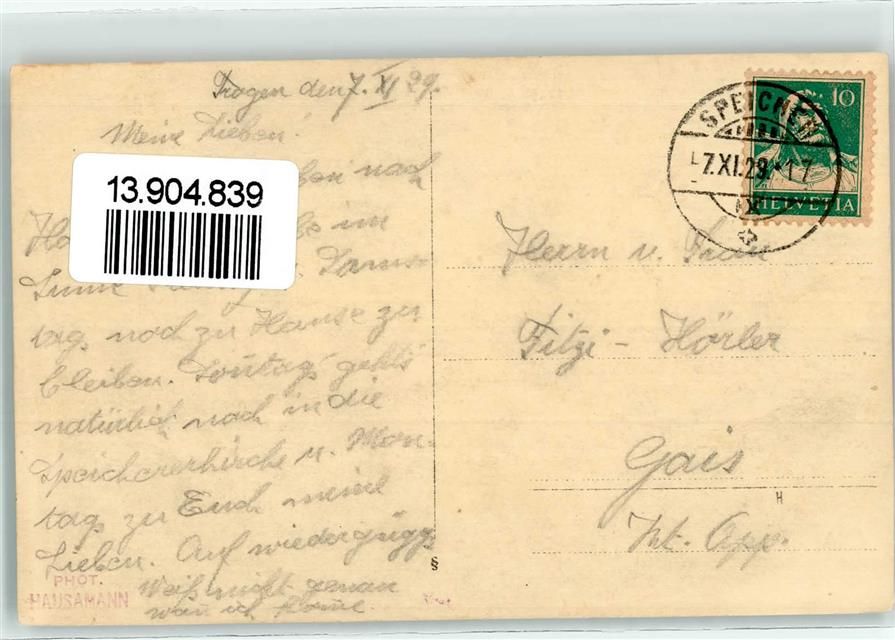 Trogen den 7. XI 29.
Meine Lieben!
nach
13.904.839
im
Sinne Sams-
tag noch zu Hause zu
bleiben. Sontag geht's
natürlich nach in die
Speichererkirche u. Mon-
tag zu Euch meine
Lieben. Auf wiedergügg
Weiß nicht genau
wan ich kome.
PHOT.
HAUSAMANN
§
SPEICHER
7.XI.29.17
10
HELVETIA
Herrn u. Frau
Fitzi - Hörler
Gais
H
Kt. App.